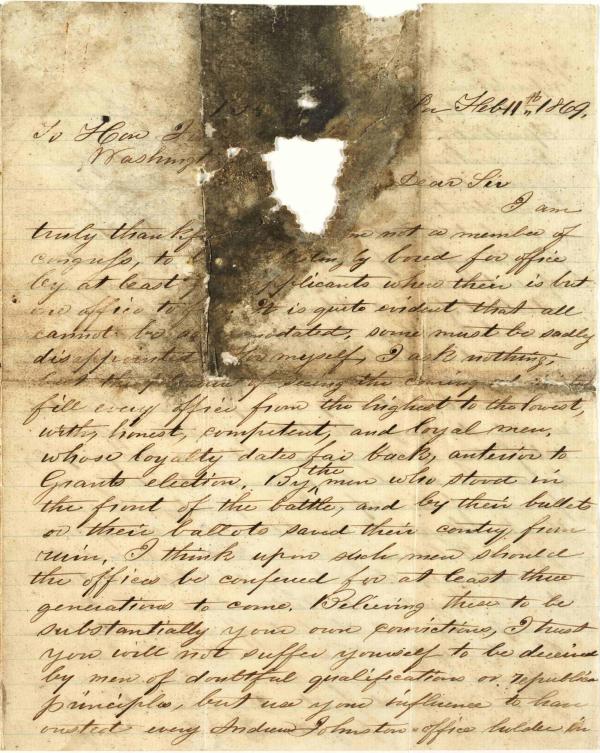 Pa Feb 11th, 1869.
To Hon J
Washingt
Dear Sir
I am
truly thankf not a member of
congress, to bored for office
by at least applicants when their is but
one office to it is quite evident that all
cannot be dated, some must be sadly
disappointed myself, I ask nothing,
of seeing the
fill every office from the highest to the lowest,
with, honest, competent, and loyal men,
whose loyalty dates far back, anterior to
Grants election. By the men who stood in
the front of the battle, and by their bullets
or their ballots saved their contry from
ruin, I think upon such men should
the offices be confered for at least three
generations to come. Believing these to be
substantially your own convictions, I trust
you will not suffer yourself to be deceived
by men of doubtful qualifications or republican
principles, but use your influence to have
ousted every Andrew Johnston office holder in